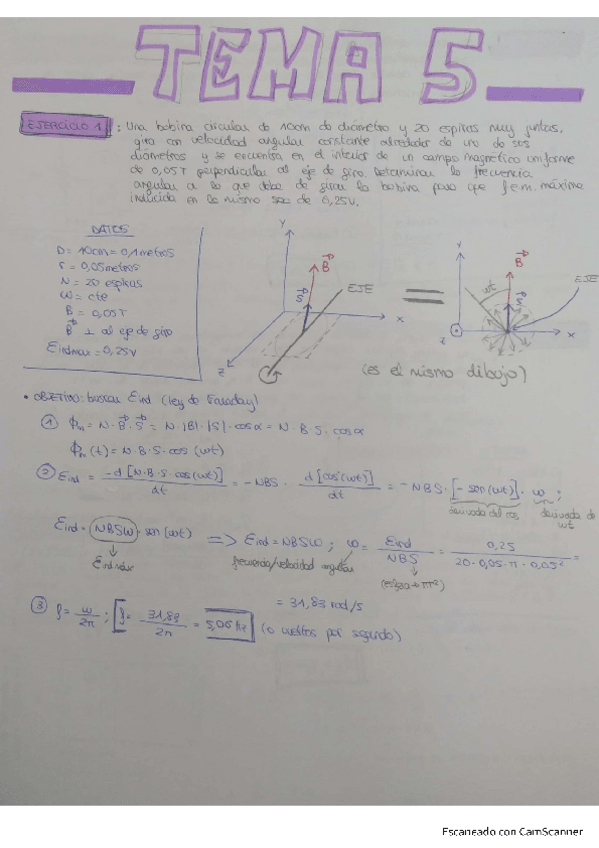 TEMA 5
EJERCICIO 1: Una bobina circular de 10cm de diámetro y 20 espiras muy juntas,
gira con velocidad angular constante alrededor de uno de sus
diámetros y se encuentra en el interior de un campo magnético uniforme
de 0,05T perpendicular al eje de giro. Determinar la frecuencia
angular a la que debe de girar la bobina para que f.e.m. máxima
inducida en la misma sea de 0,25V.
DATOS
D = 10cm = 0,1 metros
r = 0,05 metros
N = 20 espiras
ω = cte
B = 0,05T
B ⊥ al eje de giro
Eindmax = 0,25V
Y
B
S
EJE
X
Z
=
Y
B
ωt
S
EJE
X
Z
(es el mismo dibujo)
• OBJETIVO: buscar Eind (ley de Faraday)
① Φm = N · B · S = N · |B| · |S| · cos α = N · B · S · cos α
Φm (t) = N · B · S · cos (ωt)
② Eind = -d [N·B·S · cos(ωt)] / dt = - NBS · d [cos(ωt)] / dt = - NBS · [- sen(ωt)] · ω ;
derivada del cos
derivada de ωt
Eind = NBSω · sen (ωt) => Eind = NBSω ; ω = Eind / NBS = 0,25 / 20 · 0,05 · π · 0,05² =
Eindmáx
frecuencia/velocidad angular
= 31,83 rad/s
③ f = ω / 2π ; f = 31,83 / 2π = 5,06 Hz (o vueltas por segundo)
Escaneado con CamScanner